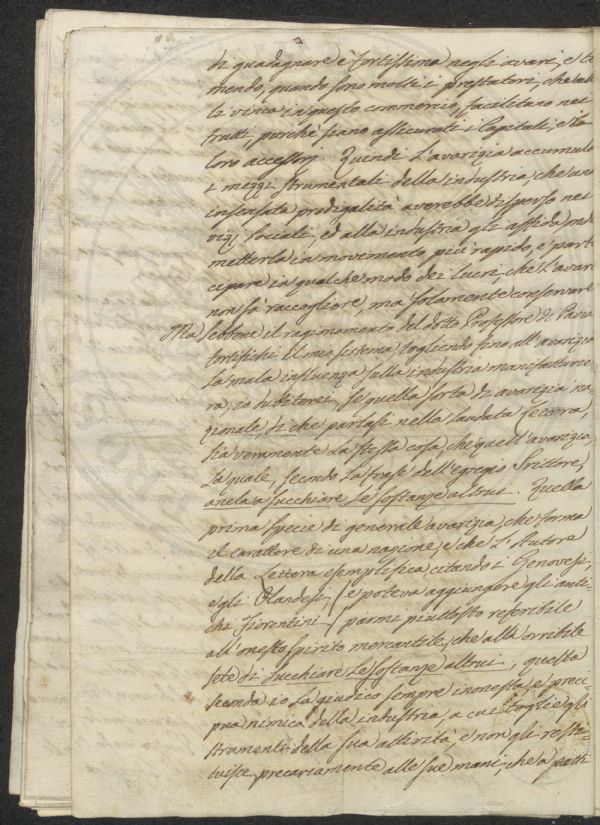 di guadagnare è fortissima negli avari, e te
mendo, quando sono molti i prestatori, che al
li vinca in questo commercio, facilitano nei
frutti, purchè siano assicurati i Capitali, e i
loro accessorj. Quindi l'avarizia accumula
i mezzi strumentali della industria, che una
insensata prodigalità averebbe disperso nei
vizj sociali, ed alla industria gli affida on
metterla in movimento più rapido, e parte
cipare in qualche modo dei lucri, che l'avaro
non sà raccogliere, ma solamente conservare
Ma sebbene il ragionamento del dotto Professore di Pavia
fortifichi il mio sistema togliendo fino all'avarizia
la mala influenza sulla industria manifatturie
ra, io dubiterei, se quella sorta di avarizia na
zionale, di che parlasi nella laudata lettera,
sia veramente la stessa cosa, che quell'avarizia,
la quale, secondo la frase dell'egregio Scrittore,
anela a succhiare le sostanze altrui. Quella
prima specie di generale avarizia, che forma
il carattere di una nazione, e che l'Autore
della Lettera esemplifica, citando i Genovesi,
e gli Olandesi, (e poteva aggiungere gli anti-
chi Fiorentini) parmi piuttosto referibile
all'onesto spirito mercantile, che alla orribile
sete di succhiare le sostanze altrui, questa
seconda io la giudico sempre inonesta, e preci-
pua nimica della industria, a cui toglie gli
strumenti della sua attività, e non gli resti-
tuisce precariamente alle sue mani, che a patti